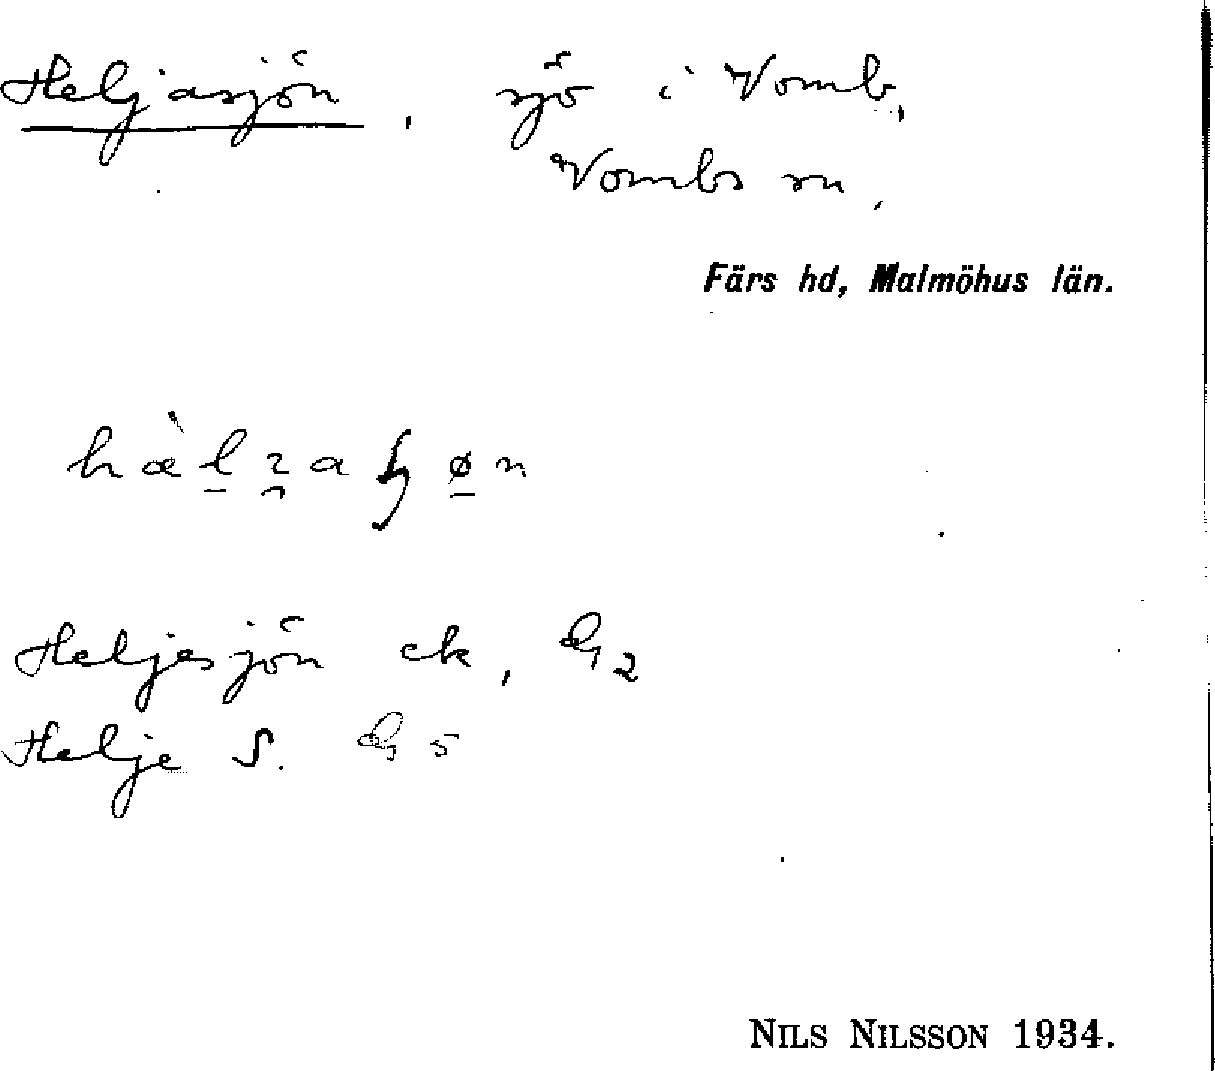 Heljasjön, sjö i Vomb,
Vombs sn,
Färs hd, Malmöhus län.
Heljesjön ek, G 2
Helje S. G 5
NILS NILSSON 1934.